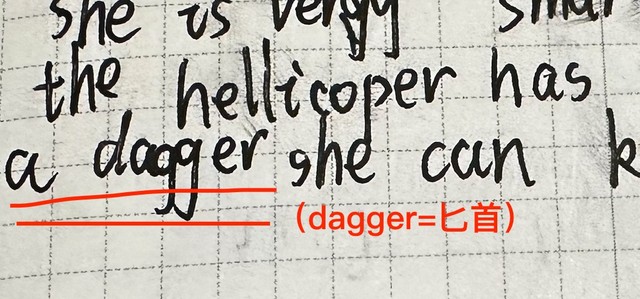 she is vergy smar
the hellicoper has
a dagger she can k
(dagger=匕首)